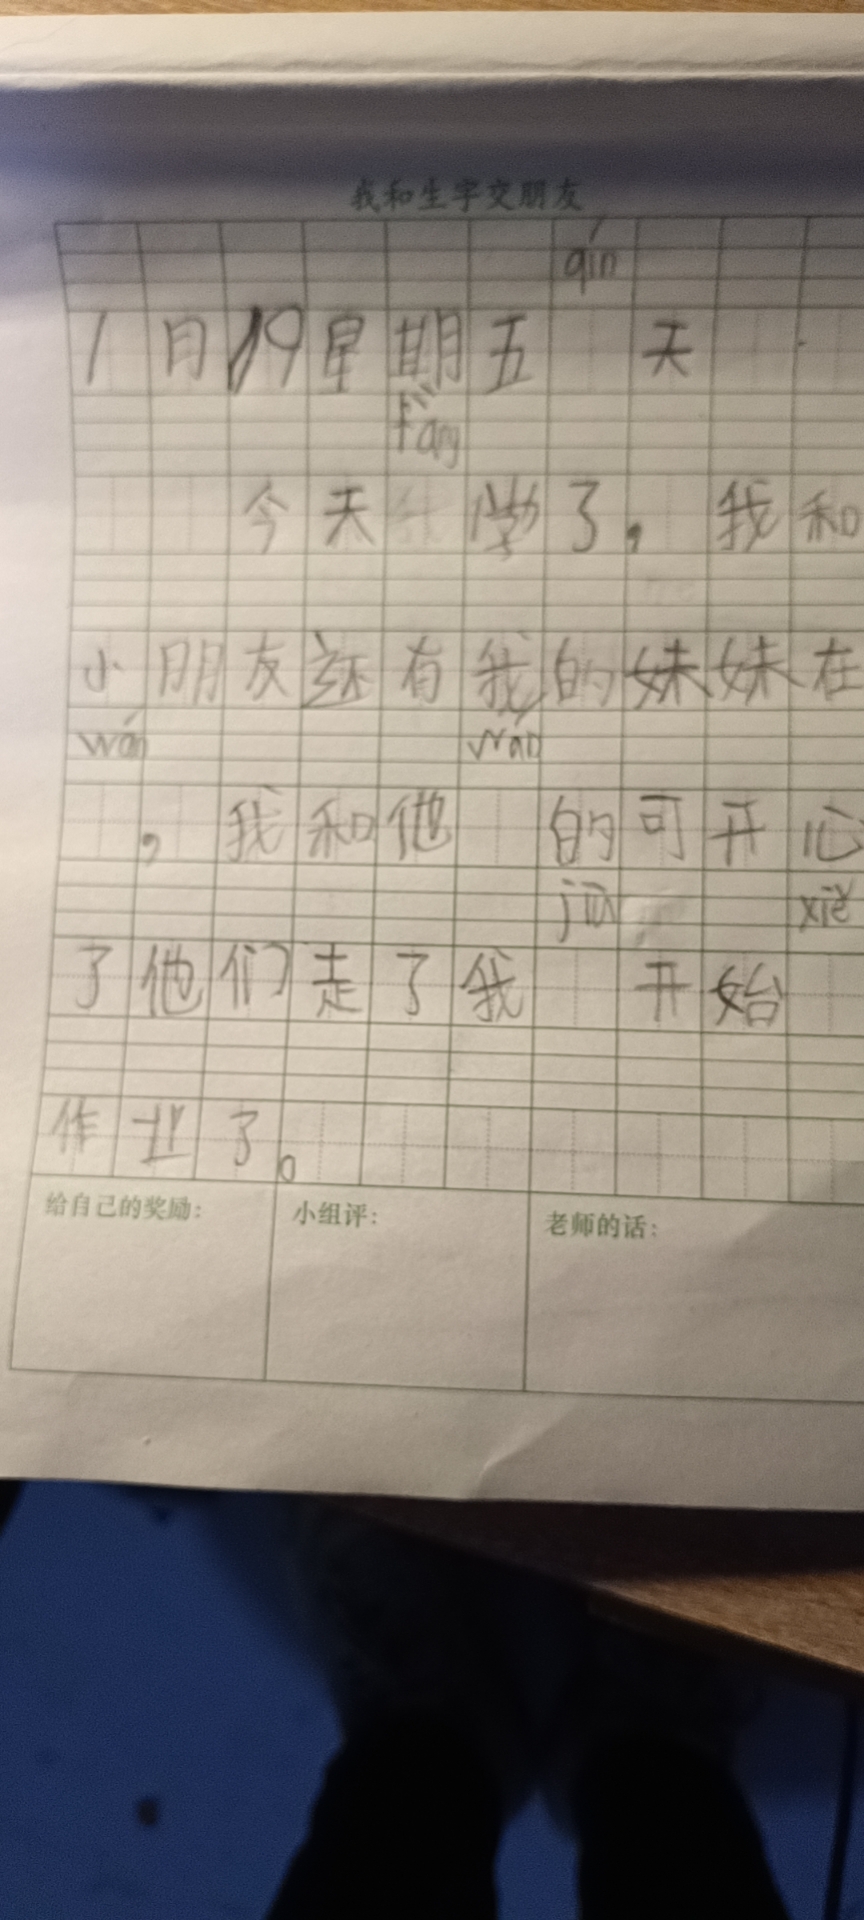 我和生字交朋友
qín
1月19星期五 天
fàng
今天 学了，我和
小朋友还有我的妹妹在
wán wán
，我和他 的可开心
jiù xiě
了他们走了我 开始
作业了。
给自己的奖励： 小组评： 老师的话：